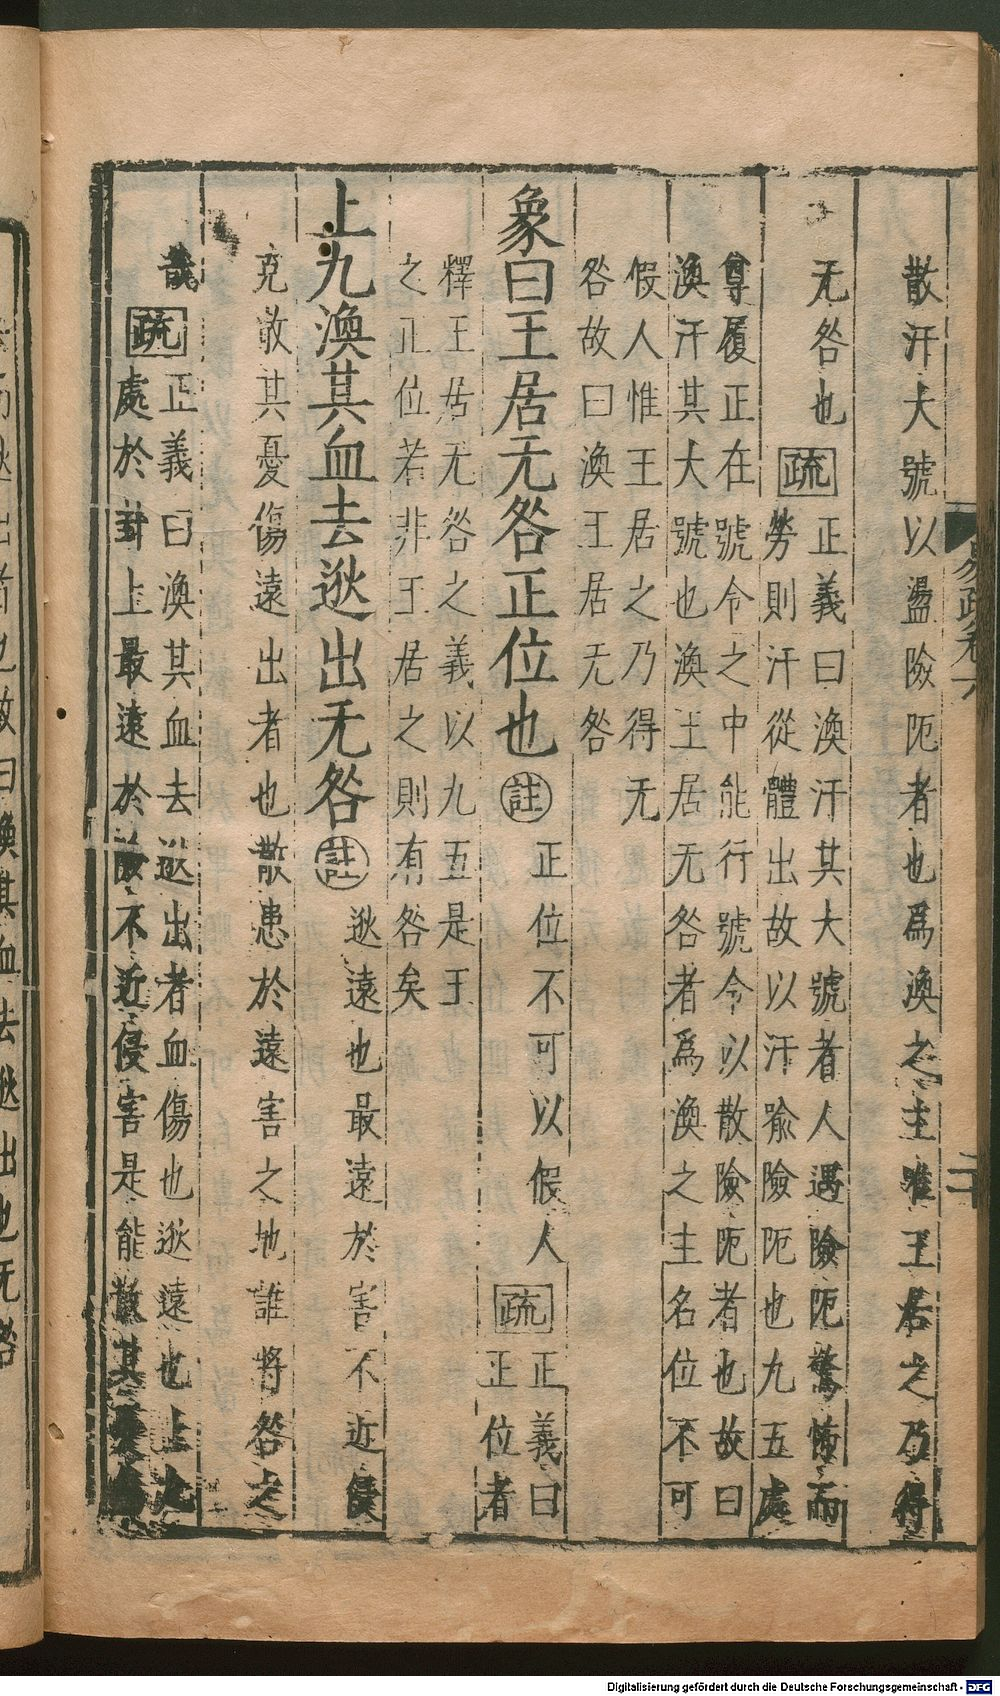 易疏卷六
二十
散汗大號以盪險阨者也爲渙之主唯王居之乃得
无咎也疏正義曰渙汗其大號者人遇險阨驚怖而
勞則汗從體出故以汗喻險阨也九五處
尊履正在號令之中能行號令以散險阨者也故曰
渙汗其大號也渙王居无咎者爲渙之主名位不可
假人惟王居之乃得无
咎故曰渙王居无咎
象曰王居无咎正位也註正位不可以假人疏正義曰
正位者
釋王居无咎之義以九五是王
之正位若非王居之則有咎矣
上九渙其血去逖出无咎註逖遠也最遠於害不近侵
克散其憂傷遠出者也散患於遠害之地誰將咎之
哉疏正義曰渙其血去逖出者血傷也逖遠也上九
處於卦上最遠於險不近侵害是能散其憂傷
渙其血去逖出也无咎
Digitalisierung gefördert durch die Deutsche Forschungsgemeinschaft - DFG